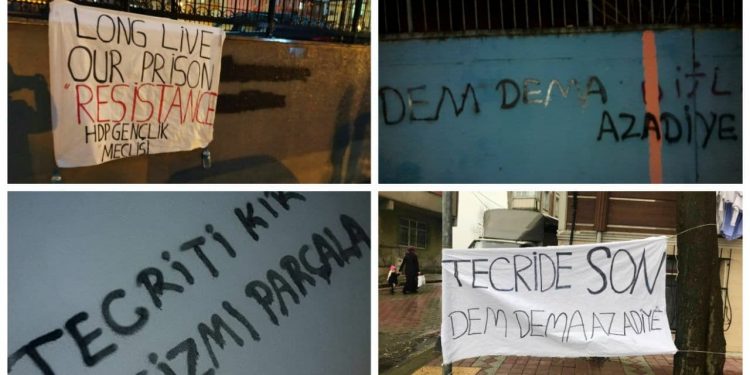 LONG LIVE
OUR PRISON
"RESISTANCE
HDP GENÇLİK
MECLİSİ
DEM DEMA
AZADİYE
TECRİTİ KIR
İZMİ PARÇALA
TECRİDE SON
DEM DEMA AZADİYÊ